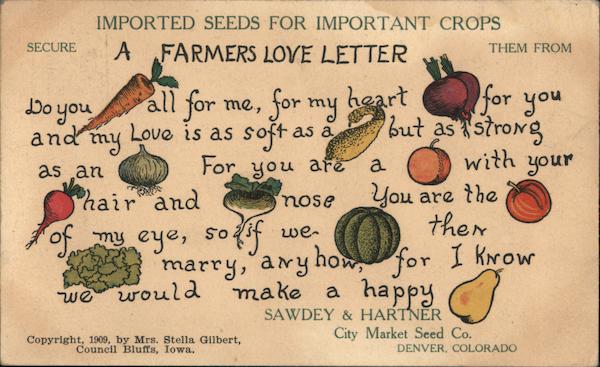 IMPORTED SEEDS FOR IMPORTANT CROPS
SECURE A FARMERS LOVE LETTER THEM FROM
Do you all for me, for my heart for you
and my Love is as soft as a but as strong
as an For you are a with your
hair and nose You are the
of my eye, so if we then
marry, anyhow, for I Know
we would make a happy
SAWDEY & HARTNER
City Market Seed Co.
DENVER, COLORADO
Copyright, 1909, by Mrs. Stella Gilbert,
Council Bluffs, Iowa.